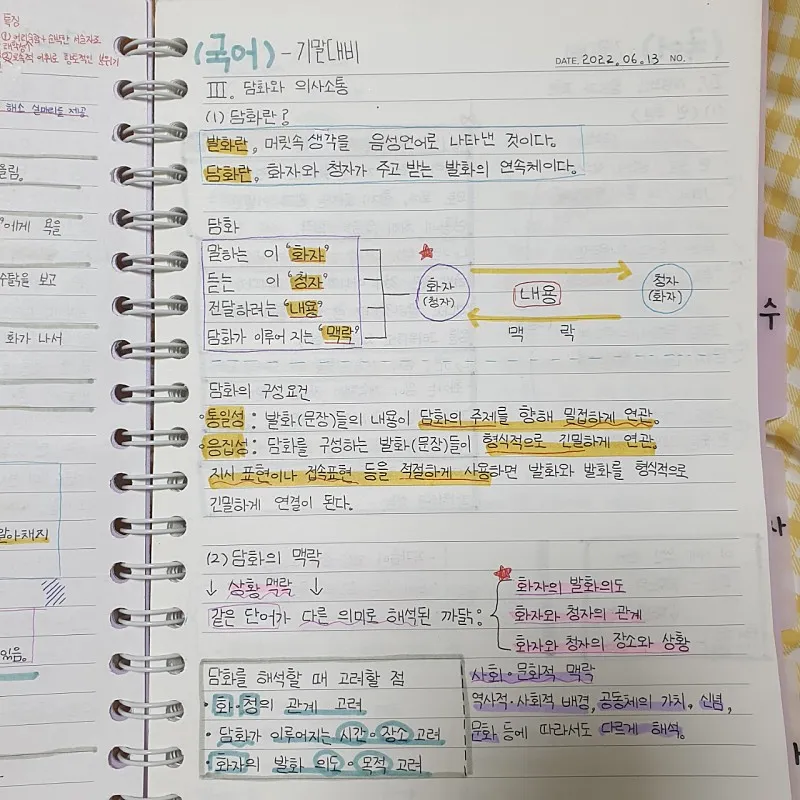 특징
해소 실마리를 제공
울림.
에게 욕을
수탉을 보고
화가 나서
알아채지
있음.
(국어) - 기말대비
DATE. 2022. 06. 13 NO.
Ⅲ. 담화와 의사소통
(1) 담화란?
발화란, 머릿속 생각을 음성언어로 나타낸 것이다.
담화란, 화자와 청자가 주고 받는 발화의 연속체이다.
담화
말하는 이 "화자"
듣는 이 "청자"
전달하려는 "내용"
담화가 이루어 지는 "맥락"
화자
(청자)
내용
맥 락
청자
(화자)
담화의 구성요건
통일성 : 발화(문장)들의 내용이 담화의 주제를 향해 밀접하게 연관.
응집성 : 담화를 구성하는 발화(문장)들이 형식적으로 긴밀하게 연관.
지시 표현이나 접속표현 등을 적절하게 사용하면 발화와 발화를 형식적으로
긴밀하게 연결이 된다.
(2) 담화의 맥락
↓ 상황 맥락 ↓
같은 단어가 다른 의미로 해석된 까닭 :
화자의 발화의도
화자와 청자의 관계
화자와 청자의 장소와 상황
담화를 해석할 때 고려할 점
· 화·청의 관계 고려
· 담화가 이루어지는 시간·장소 고려
· 화자의 발화 의도·목적 고려
사회·문화적 맥락
역사적·사회적 배경, 공동체의 가치, 신념,
문화 등에 따라서도 다르게 해석.
수